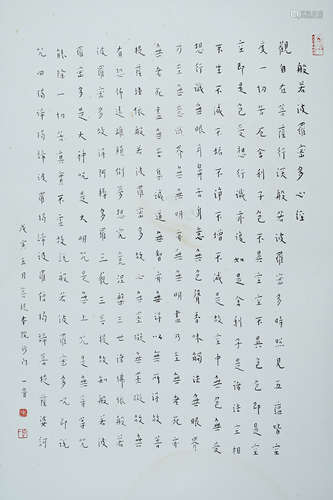 般若波羅蜜多心經
觀自在菩薩行深般若波羅蜜多時照見五蘊皆空
度一切苦厄舍利子色不異空空不異色色即是空
空即是色受想行識亦復如是舍利子是諸法空相
不生不滅不垢不淨不增不減是故空中無色無受
想行識無眼耳鼻舌身意無色聲香味觸法無眼界
乃至無意識界無無明亦無無明盡乃至無老死亦
無老死盡無苦集滅道無智亦無得以無所得故菩
提薩埵依般若波羅蜜多故心無罣礙無罣礙故無
有恐怖遠離顛倒夢想究竟涅槃三世諸佛依般若
波羅蜜多故得阿耨多羅三藐三菩提故知般若波
羅蜜多是大神咒是大明咒是無上咒是無等等咒
能除一切苦真實不虛故說般若波羅蜜多咒即說
咒曰揭諦揭諦波羅揭諦波羅僧揭諦菩提薩婆訶
戊寅五月沙門一音